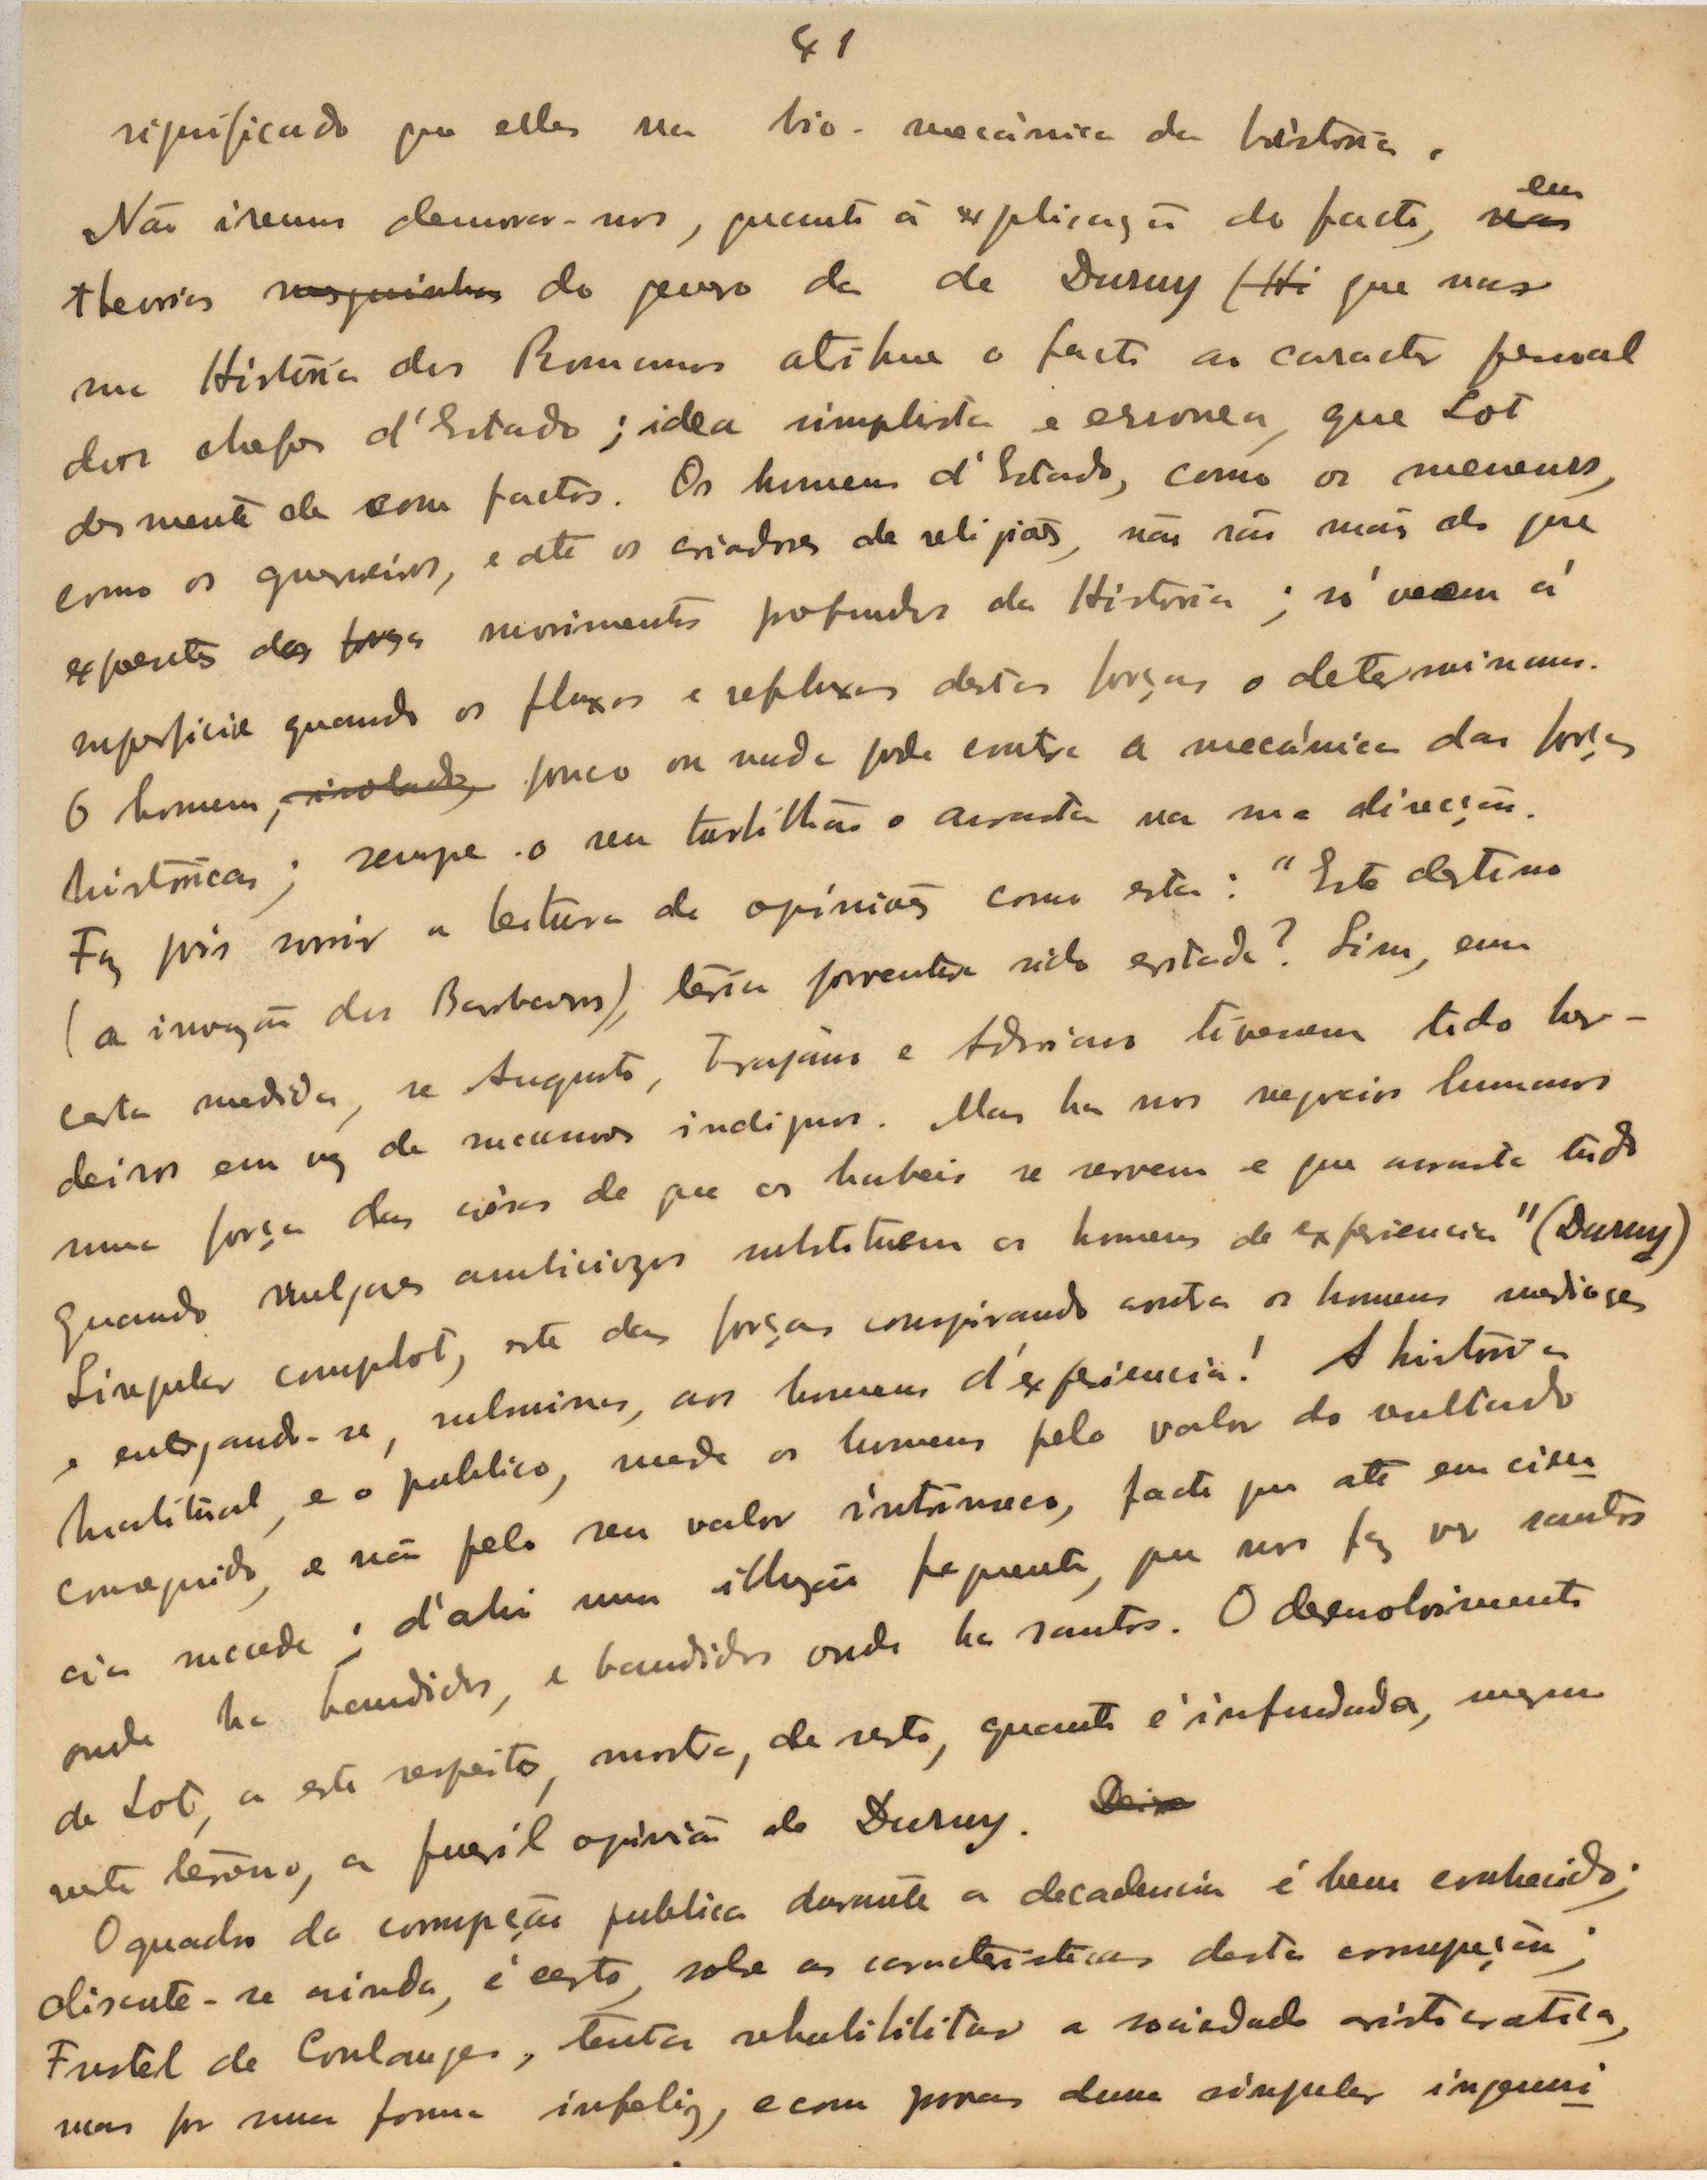 41
significado que elles na bio-mecánica da história.
Não iremos demorar-nos, quanto á explicação do facto, nas em
theorias mesquinhas do genero da de Duruy (Hi que nas
sua História dos Romanos atribue o facto ao caracter pessoal
dos chefes d'Estado; idea simplista e erronea, que Lot
desmente de com factos. Os homens d'Estado, como os meneurs,
como os guerreiros, e até os criadores de religiões, não são mais do que
expoentes das força movimentos profundos da História; só veem á
superficie quando os fluxos e refluxos destas forças o determinam.
O homem, isolado, pouco ou nada pode contra a mecánica das forças
históricas; sempre o seu turbilhão o arrasta na sua direcção.
Faz pois sorrir a leitura de opiniões como esta: "Este destino
(a invazão dos Barbaros), teria porventura sido evitado? Sim, em
certa medida, se Augusto, Trajano e Adriano tivessem tido her-
deiros em vez de sucessores indignos. Mas ha nos negocios humanos
uma força das coisas de que os habeis se servem e que arrasta tudo
quando vulgares ambiciozos substituem os homens de experiencia" (Duruy)
Singular complot, este das forças conspirando contra os homens mediocres
e entregando-se, submissas, aos homens d'experiencia! A história
habitual, e o publico, mede os homens pelo valor do resultado
conseguido, e não pelo seu valor intrinseco, facto que até em cien
cia sucede; d'ahi uma illuzão frequente, que nos faz ver santos
onde ha bandidos, e bandidos onde ha santos. O desenvolvimento
de Lot, a este respeito, mostra, de resto, quanto é infundada, mesmo
neste terreno, a pueril opinião de Duruy. Deixe
O quadro da corrupção publica durante a decadencia é bem conhecido;
discute-se ainda, é certo, sobre as caracteristicas desta corrupção;
Fustel de Coulanges, tenta rehabilitar a sociedade aristocratica,
mas por uma forma infeliz, e com provas duma singular ingenui